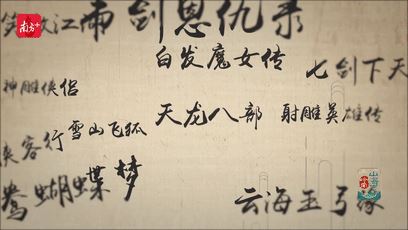 南方+
江南
剑恩仇录
白发魔女传
七剑下天
神雕侠侣
天龙八部
射雕英雄传
侠客行
雪山飞狐
鸯蝴蝶梦
云海玉弓缘